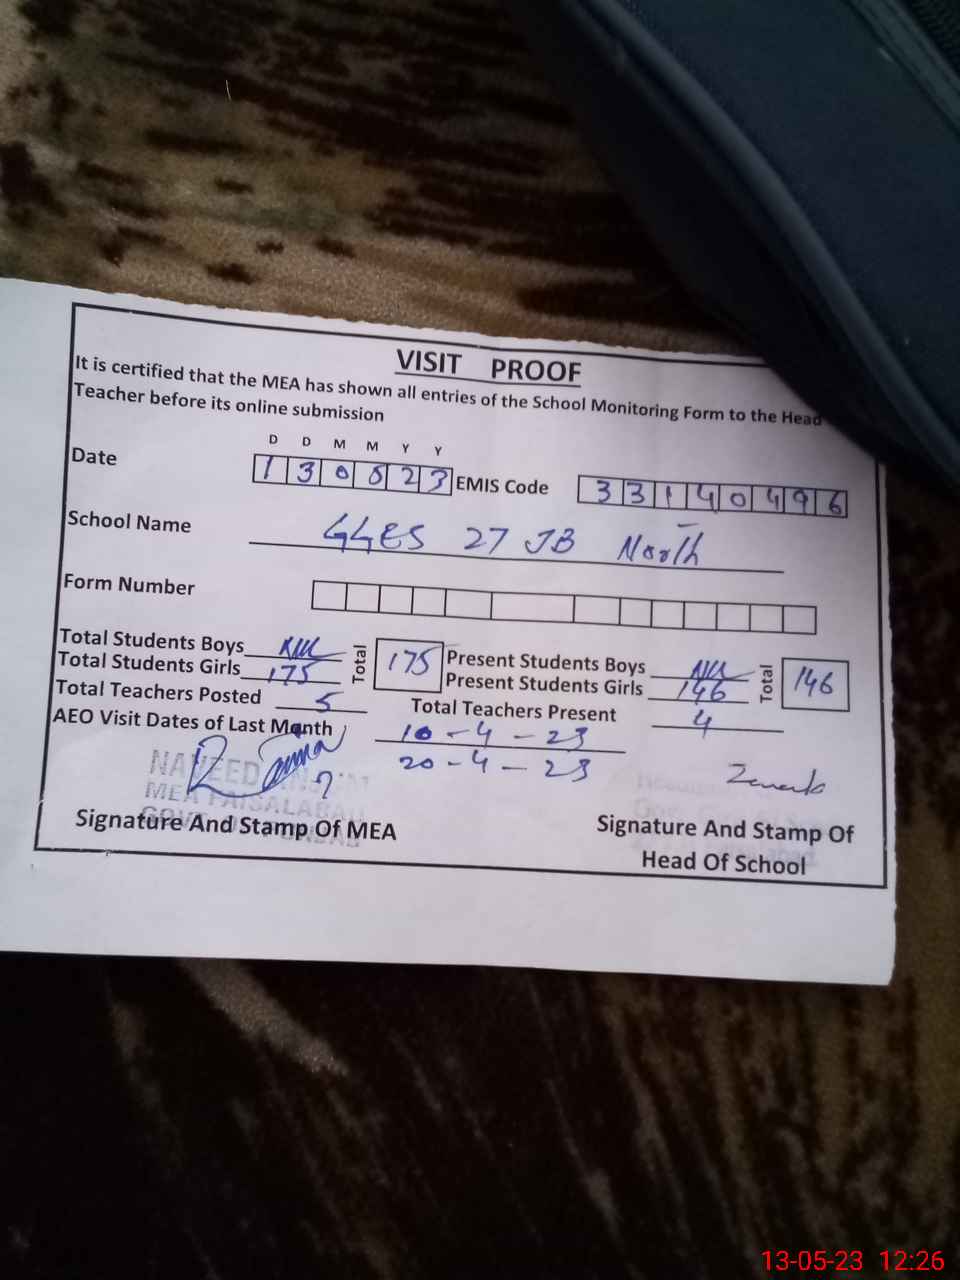 VISIT PROOF
It is certified that the MEA has shown all entries of the School Monitoring Form to the Head
Teacher before its online submission
D D M M Y Y
Date 1 3 0 5 2 3 EMIS Code 3 3 1 4 0 4 9 6
School Name GGES 27 JB North
Form Number
Total Students Boys Nil Total 175 Present Students Boys Nil Total 146
Total Students Girls 175 Present Students Girls 146
Total Teachers Posted 5 Total Teachers Present 4
AEO Visit Dates of Last Month 10-4-23
20-4-23
NAVEED
MEA FAISALABAD
Signature And Stamp Of MEA Signature And Stamp Of
Head Of School
13-05-23 12:26